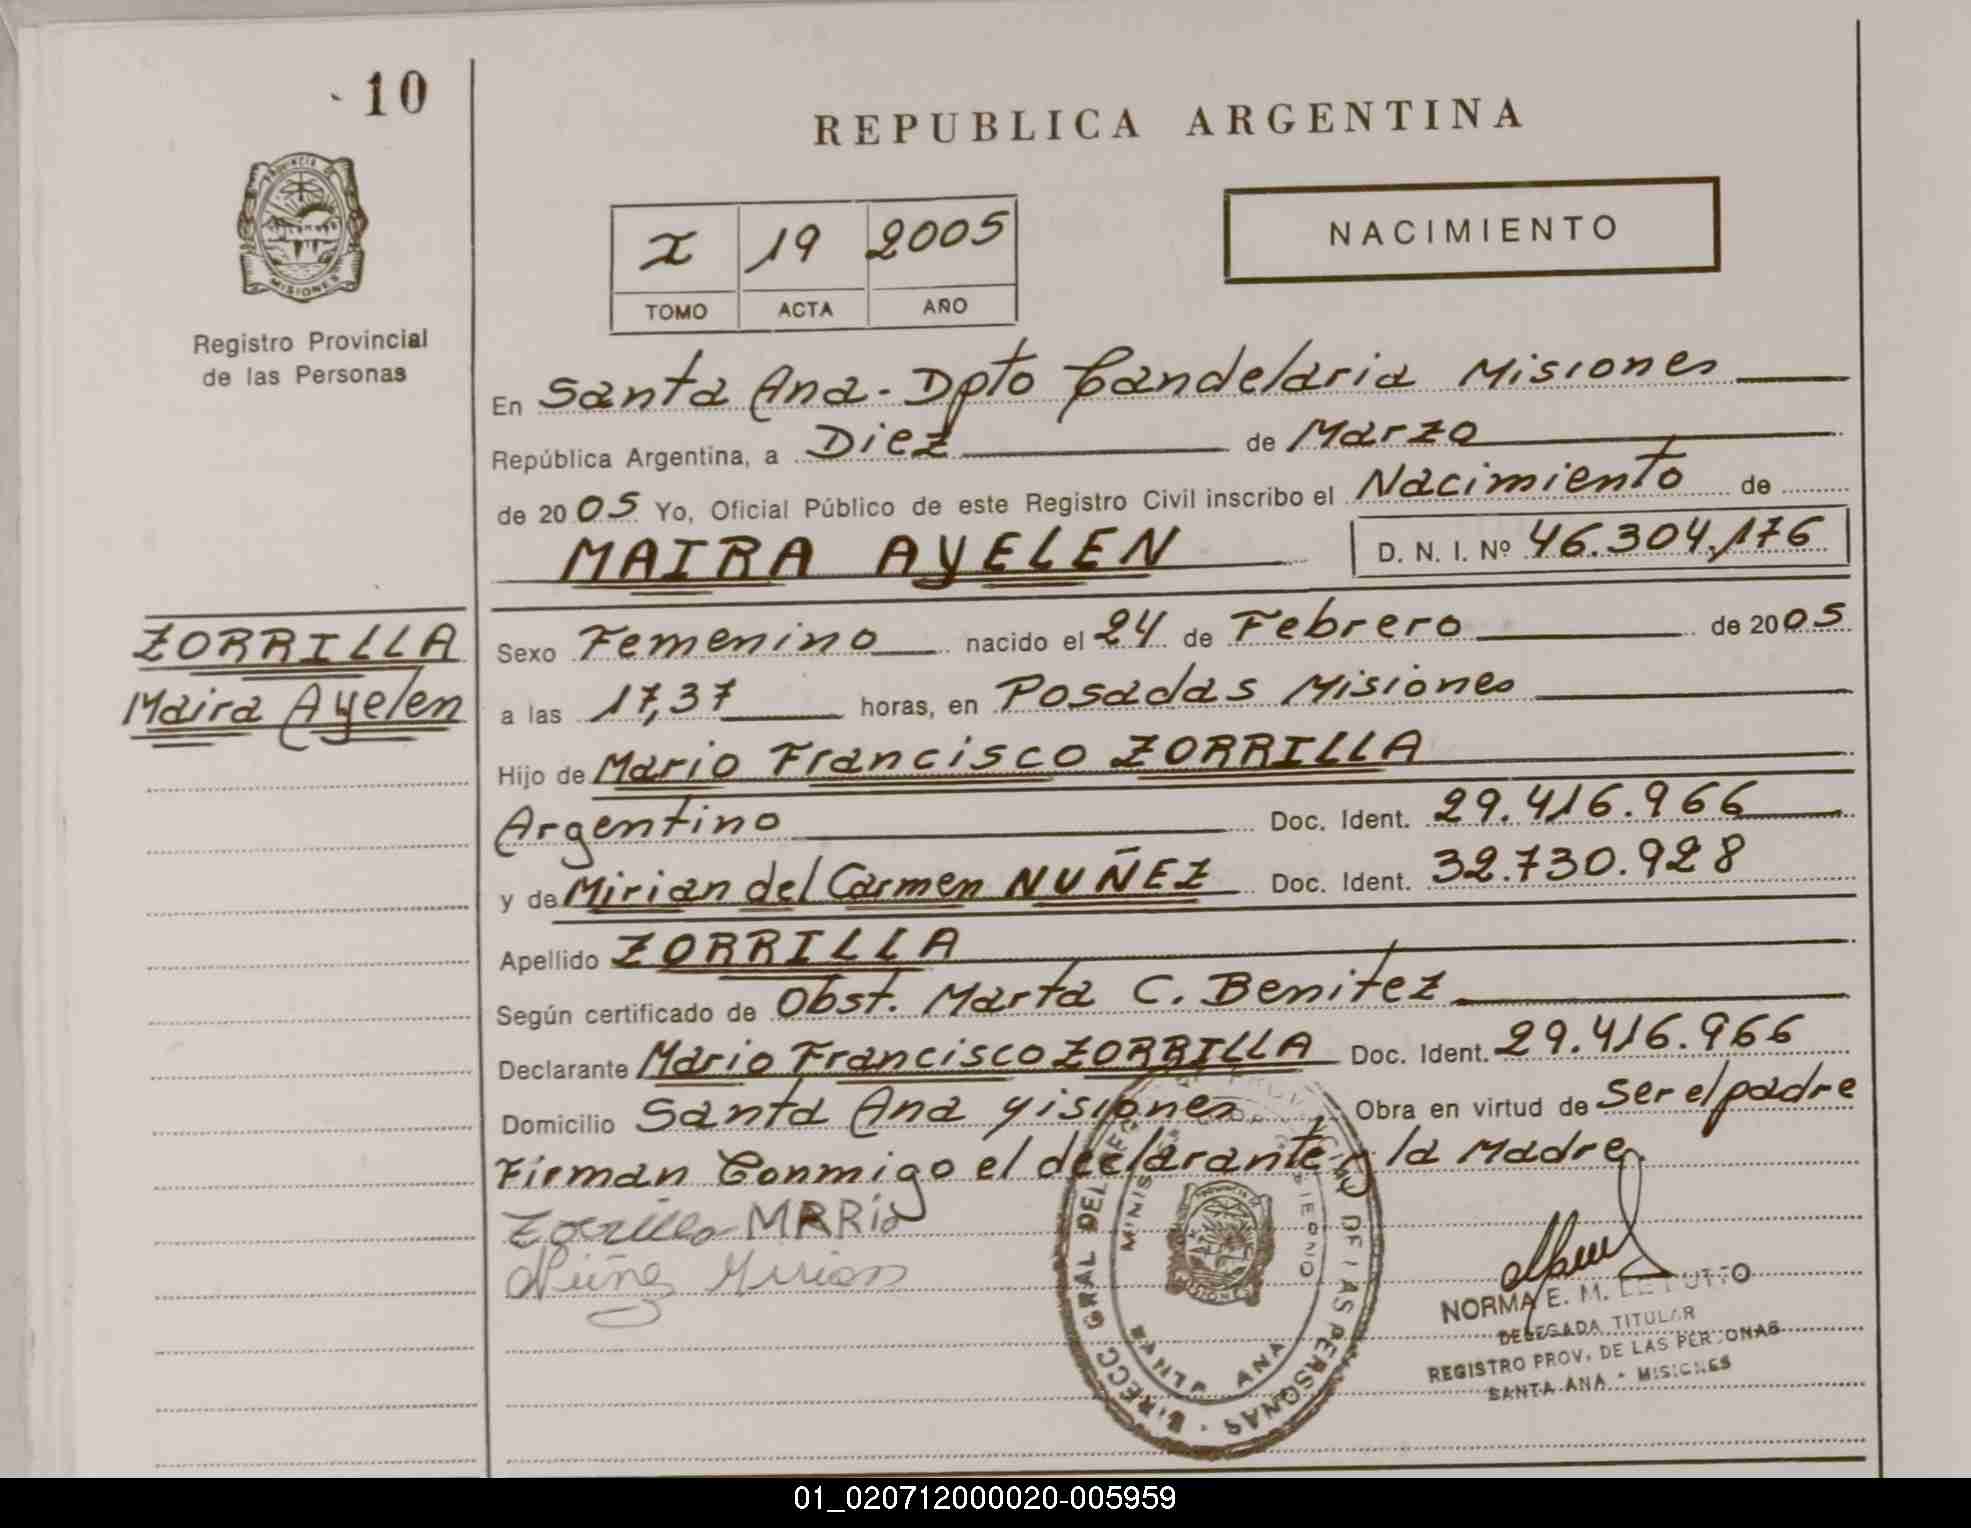 10
REPUBLICA ARGENTINA
PROVINCIA DE
MISIONES
Registro Provincial
de las Personas
I 19 2005
TOMO ACTA AÑO
NACIMIENTO
En Santa Ana - Dpto Candelaria Misiones
República Argentina, a Diez de Marzo
de 2005 Yo, Oficial Público de este Registro Civil inscribo el Nacimiento de
MAIRA AYELEN D. N. I. Nº 46.304.176
ZORRILLA
Maira Ayelen
Sexo Femenino nacido el 24 de Febrero de 2005
a las 17,37 horas, en Posadas Misiones
Hijo de Mario Francisco ZORRILLA
Argentino Doc. Ident. 29.416.966
y de Mirian del Carmen NUÑEZ Doc. Ident. 32.730.928
Apellido ZORRILLA
Según certificado de Obst. Marta C. Benitez
Declarante Mario Francisco ZORRILLA Doc. Ident. 29.416.966
Domicilio Santa Ana Misiones Obra en virtud de ser el padre
Firman Conmigo el declarante y la Madre.
Zorrilla MARIO
Núñez Mirian
DIRECC GRAL DEL DE LAS PERSONAS
SANTA ANA
PROVINCIA DE
MISIONES
NORMA E. M.
DELEGADA TITULAR
REGISTRO PROV. DE LAS PERSONAS
SANTA ANA - MISIONES
01_020712000020-005959